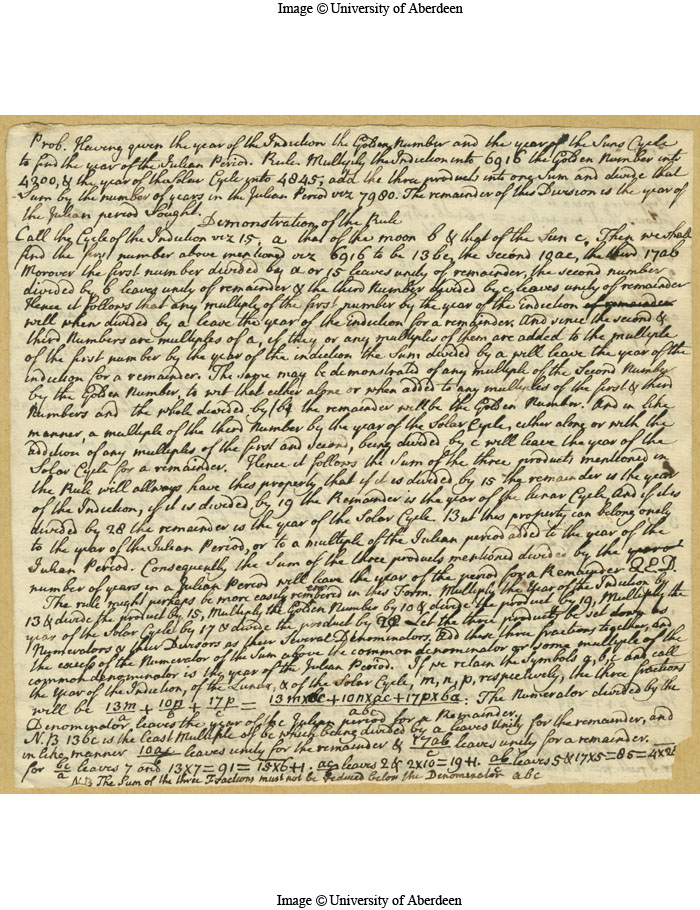 Image © University of Aberdeen
Prob. Having given the year of the Induction the Golden Number and the year of the Suns Cycle
to find the year of the Julian Period. Rule. Multiply the Induction into 6916 the Golden Number into
4200, & the year of the Solar Cycle into 4845, add the three products into one Sum and divide that
Sum by the number of years in the Julian Period viz 7980. The remainder of this Division is the year of
the Julian period Sought.
Demonstration of the Rule
Call the Cycle of the Induction viz 15. a that of the moon b & that of the Sun c. Then we shall
find the first number above mentioned viz 6916 to be 13bc, the Second 10ac, the third 17ab
Morover the first number divided by a or 15 leaves unity of remainder, the second number
divided by b leaves unity of remainder & the third Number divided by c, leaves unity of remainder
Hence it follows that any multiple of the first number by the year of the induction or remainder
will when divided by a leave the year of the induction for a remainder. And since the second &
third Numbers are multiples of a, if they or any multiples of them are added to the multiple
of the first number by the year of the induction the Sum divided by a will leave the year of the
induction for a remainder. The same may be demonstrated of any multiple of the Second Number
by the Golden Number, to wit that either alone or when added to any multiples of the first & third
Numbers and the whole divided by b the remainder will be the Golden Number. And in like
manner, a multiple of the third Number by the year of the Solar Cycle, either along or with the
addition of any multiples of the first and Second, being divided by c will leave the year of the
Solar Cycle for a remainder. Hence it follows the Sum of the three products mentioned in
the Rule will allways have this property that if it is divided by 15 the remainder is the year
of the Induction, if it is divided by 19 the Remainder is the year of the Lunar Cycle And if it is
divided by 28 the remainder is the year of the Solar Cycle. But this property can belong onely
to the year of the Julian Period, or to a multiple of the Julian period added to the year of the
Julian Period. Consequently the Sum of the three products mentioned divided by the year of
number of years in a Julian Period will leave the year of the period for a Remainder Q.E.D.
The rule might perhaps be more easily remembered in this Form. Multiply the Year of the Induction by
13 & divide the product by 15, Multiply the Golden Number by 10 & divide the product by 19, Multiply the
year of the Solar Cycle by 17 & divide the product by 28 Let the three products be set down as
Numerators & their Divisors as their Several Denominators. Add these three fractions together, and
the excess of the Numerator of the Sum above the common denominator or some multiple of the
common denominator is the year of the Julian Period. If we retain the Symbols a, b, c and call
the Year of the Induction, of the Lunar, & of the Solar Cycle, m, n, p, respectively, the three fractions
will be 13m/a + 10n/b + 17p/c = 13m×bc+10n×ac+17p×ba/abc: The Numerator divided by the
Denominator leaves the year of the Julian period for a Remainder.
N.B 13bc is the least Multiple of bc which being divided by a leaves Unity for the remainder, and
in like manner 10ac/b leaves unity for the remainder & 17ab/c leaves unity for a remainder.
for bc/a leaves 7 and 13×7=91=15×6+1. ac/b leaves 2 & 2×10=19+1. ab/c leaves 5 & 17×5=85=4×28
N.B The Sum of the three Fractions must not be reduced below the Denominator abc
Image © University of Aberdeen